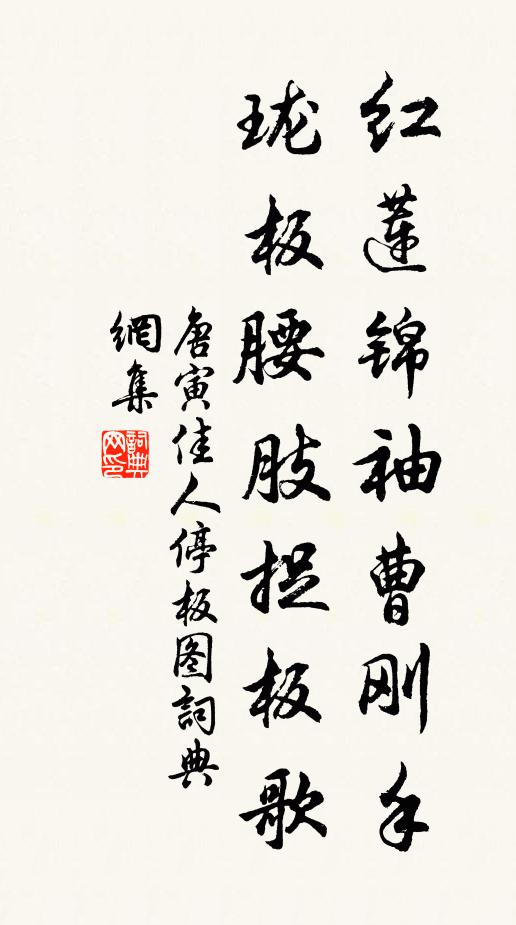 红莲锦袖曹刚手
珑板腰肢捉板歌
唐寅佳人停板图詞典
網集
詞典
网印